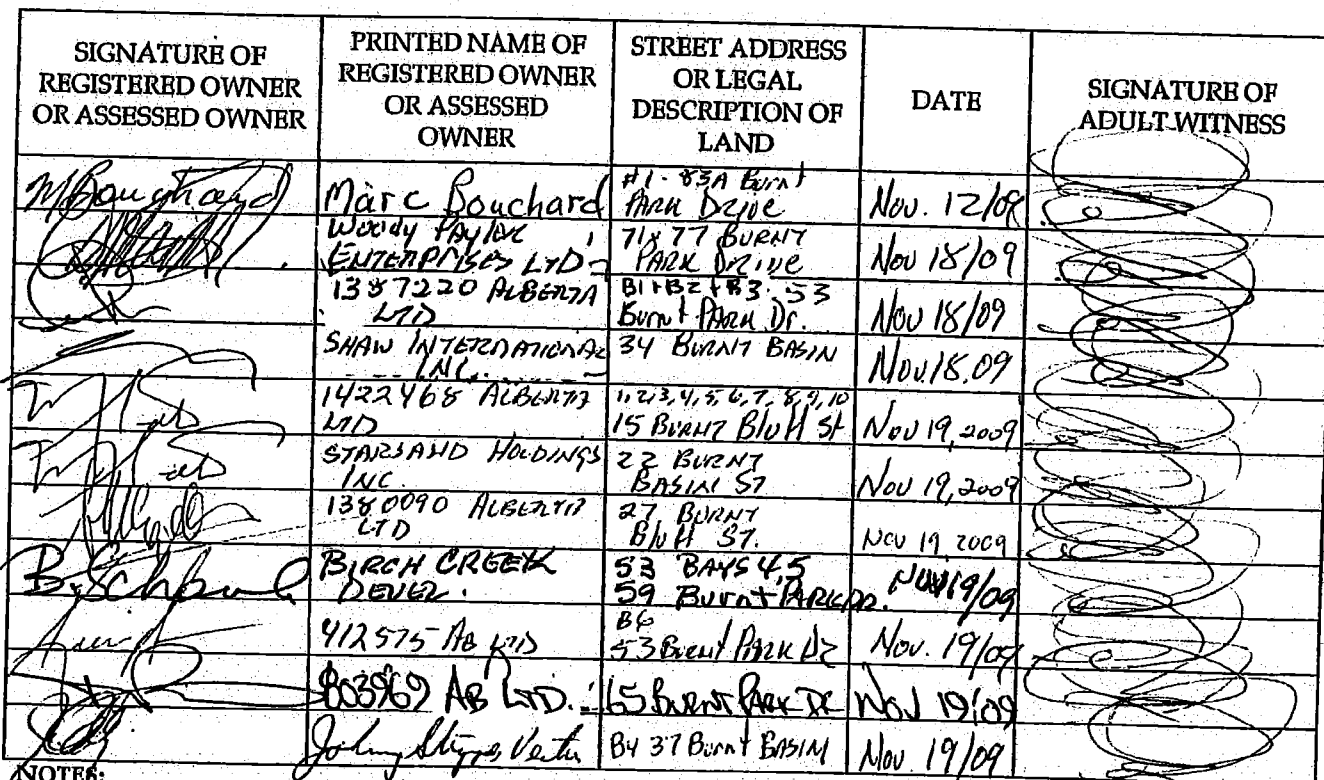 SIGNATURE OF
REGISTERED OWNER
OR ASSESSED OWNER
PRINTED NAME OF
REGISTERED OWNER
OR ASSESSED
OWNER
STREET ADDRESS
OR LEGAL
DESCRIPTION OF
LAND
DATE
SIGNATURE OF
ADULT WITNESS
M Bouchard
Marc Bouchard
#1 - 83A Burnt
PARK DRIVE
Nov. 12/09
Woody PAYLOR
ENTERPRISES LTD
71 & 77 BURNT
PARK DRIVE
Nov 18/09
1387220 ALBERTA
LTD
B1+B2+B3 - 53
Burnt PARK Dr.
Nov 18/09
SHAW INTERNATIONAL
INC.
34 BURNT BASIN
Nov.18.09
1422468 ALBERTA
LTD
1,2,3,4,5,6,7,8,9,10
15 BURNT Bluff St
Nov 19, 2009
STARSAND HOLDINGS
INC.
22 BURNT
BASIN ST
Nov 19, 2009
1380090 ALBERTA
LTD
27 BURNT
Bluff ST.
Nov 19 2009
BIRCH CREEK
DEVEL.
53 BAYS 4,5
59 Burnt PARK DR.
Nov 19/09
412575 AB LTD
B6
53 Burnt PARK Dr
Nov. 19/09
803969 AB LTD.
65 BURNT PARK DR
Nov 19/09
Johnny
B4 37 Burnt BASIN
Nov. 19/09
NOTES: